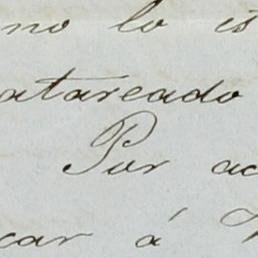 no lo
atareado
Por
car á